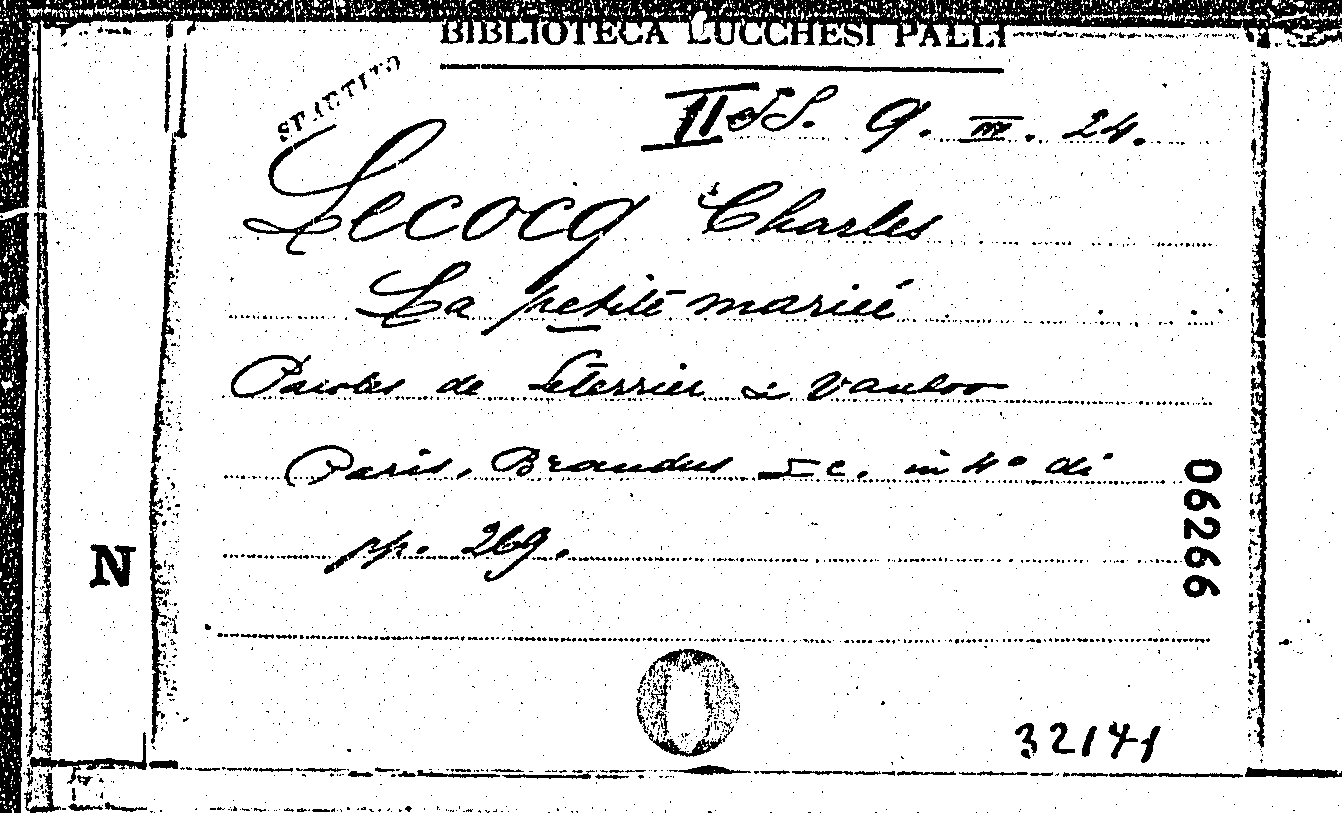 BIBLIOTECA LUCCHESI PALLI
SPARTITO
II SS. 9. III. 24.
Lecocq Charles
La petite mariée
Paroles de Leterrier & Vanloo
Paris, Brandus & C. in 4° di
pp. 269.
N
06266
32141